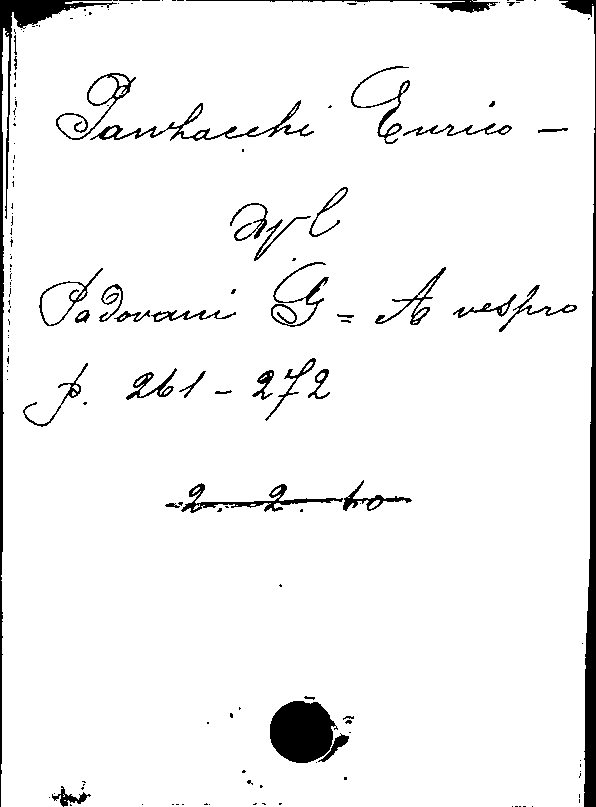 Panzacchi Enrico -
Padovani G = A vespro
p. 261 - 272
2. 2. 10